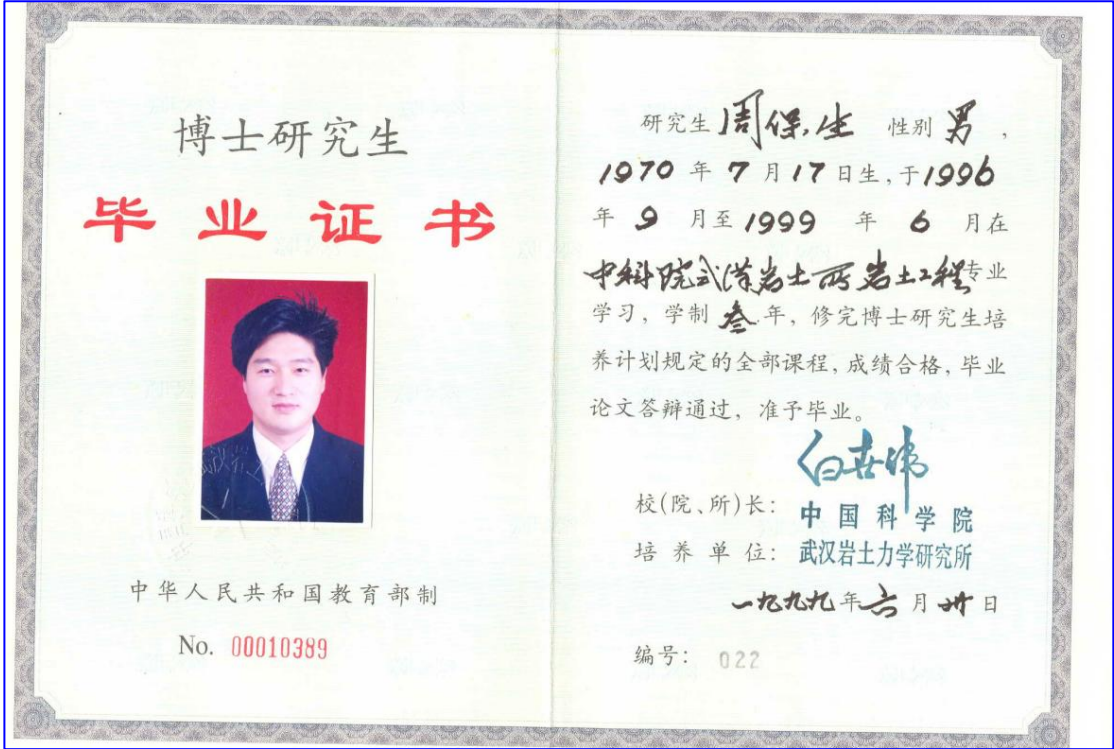 博士研究生
毕业证书
中华人民共和国教育部制
No. 00010389
研究生周保生 性别男，
1970年7月17日生,于1996
年9月至1999年6月在
中科院武汉岩土所岩土工程专业
学习，学制叁年，修完博士研究生培
养计划规定的全部课程,成绩合格,毕业
论文答辩通过，准予毕业。
白世伟
校(院、所)长：中国科学院
培养单位：武汉岩土力学研究所
一九九九年六月卅日
编号：022